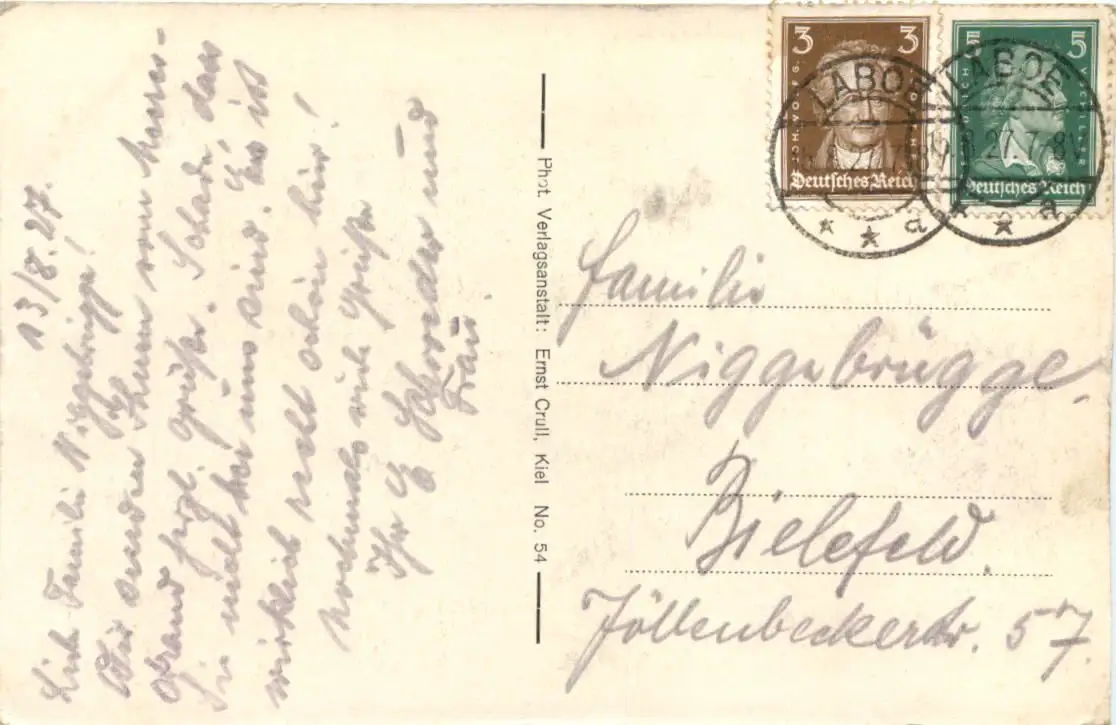 13/8.27.
Liebe Familie Niggebrügge!
Wir senden Ihnen vom Meeres-
strand frzl. Grüße. Schade dass
Sie nicht bei uns sind. Es ist
wirklich recht schön hier!
Nochmals viele Grüße
Ihr E Schroeder und
Frau.
Phot. Verlagsanstalt: Ernst Crull, Kiel No. 54
3 3
JOH. WOLFG.
Deutsches Reich
5 5
Deutsches Reich
LABOE
a
LABOE
8.27.7-8V
a
Familie
Niggebrügge.
Bielefeld.
Jöllenbeckerstr. 57.